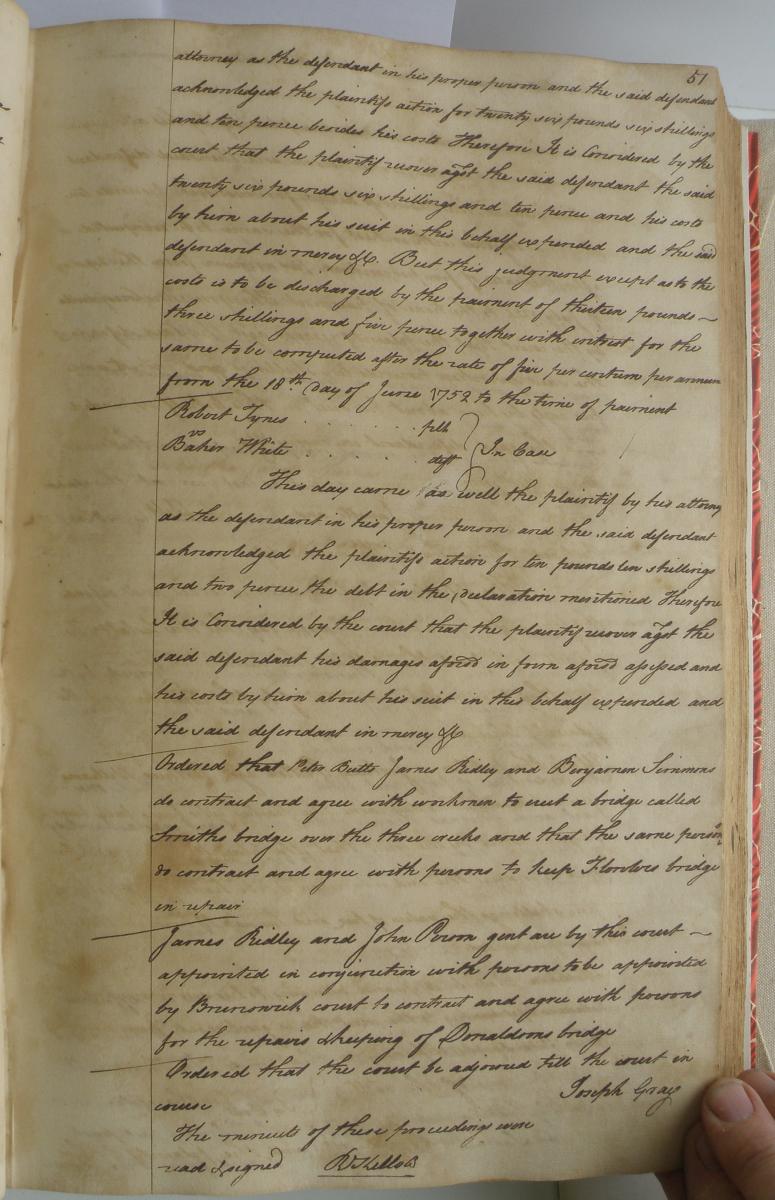 51
attorney as the defendant in his proper person and the said defendant
acknowledged the plaintifs action for twenty six pounds six shillings
and ten pence besides his costs Therefore It is Considered by the
court that the plaintif recover agst the said defendant the said
twenty six pounds six shillings and ten pence and his costs
by him about his suit in this behalf expended and the said
defendant in mercy &c. But this judgment except as to the
costs is to be discharged by the paiment of thirteen pounds
three shillings and five pence together with intrest for the
same to be computed after the rate of five per centum per annum
from the 18th Day of June 1752 to the time of paiment
Robert Tynes . . . . . plt
vs
In Case
Baker White . . . . . deft
This day came as well the plaintif by his attorney
as the defendant in his proper person and the said defendant
acknowledged the plaintifs action for ten pounds ten shillings
and two pence the debt in the declaration mentioned Therefore
It is Considered by the court that the plaintif recover agst the
said defendant his damages aforsd in form aforsd assessed and
his costs by him about his suit in this behalf expended and
the said defendant in mercy &c
Ordered that Peter Butts James Ridley and Benjamen Simmons
do contract and agree with workmen to erect a bridge called
Smiths bridge over the three creeks and that the same persons
do contract and agree with persons to keep bridge
in repair
James Ridley and John Person gent are by this court
appointed in conjunction with persons to be appointed
by Brunswick court to contract and agree with persons
for the repairs &keeping of Donaldsons bridge
Ordered that the court be adjorned till the court in
course
Joseph Gray
The minuets of these proceedings were
read &signed